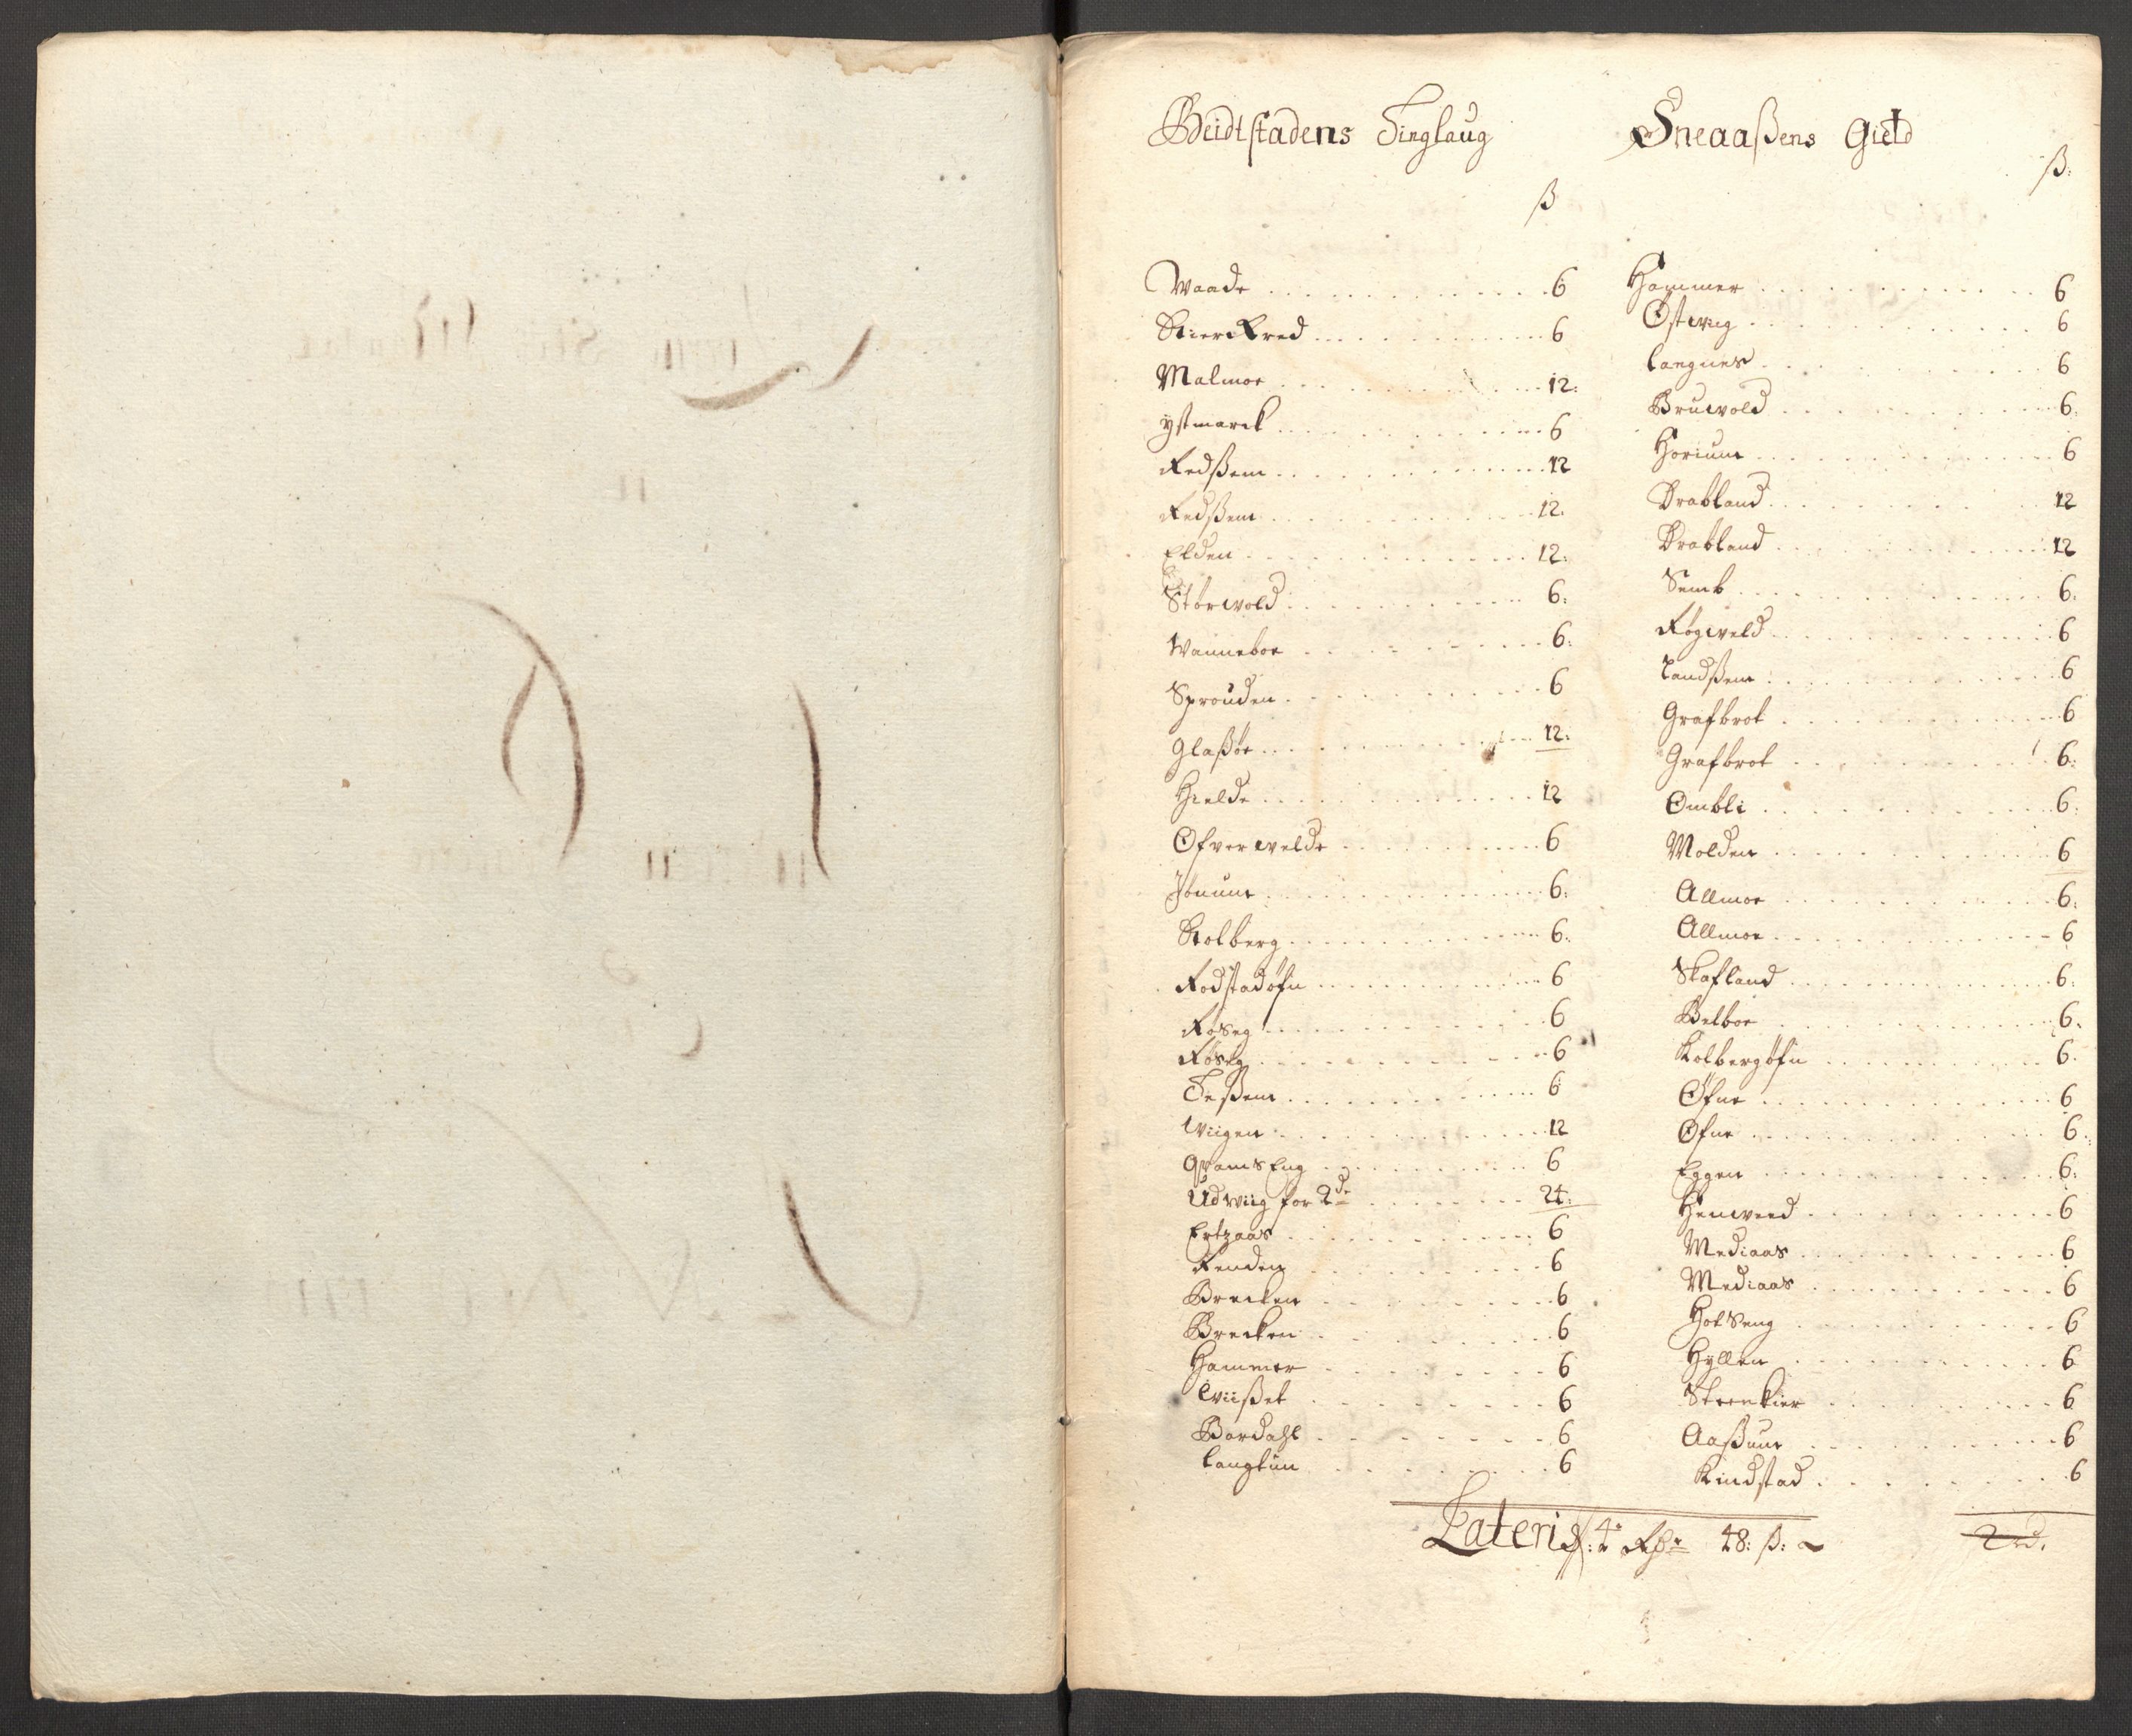 Beidtstadens Tinglaug
ß
Waade 6
Stierckred 6
Malmoe 12:
ystmarck 6
Redßem 12
Redßem 12:
Elden 12:
Størwold 6:
Wanneboe 6:
Sprouden 6
Glaßøe 12:
Hielde 12
Ofver welde 6
Jønum 6:
Stolberg 6:
Rodstadøfn 6
Røseg 6
Røseg 6
Teßem 6
Wiigen 12
Qvams Eng 6
Udwiig for 2de 24:
Ertzaas 6
Renden 6
Brecken 6
Brecken 6
Hammer 6
Wiißet 6
Bardahl 6
Langtun 6
Sneaaßens Gield
ß:
Hammer 6
Østwiig 6
Langnes 6
Bruwold 6:
Horium 6
Brabland 12
Brabland 12
Semb 6:
Røgweld 6
Landßem 6
Grafbrot 6
Grafbrot 6:
Ombli 6:
Molden 6
Allmoe 6:
Allmoe 6
Skafland 6:
Belboe 6:
Kolbergøfn 6:
Øfne 6
Øfne 6:
Eggen 6:
Henweed 6
Mediaas 6
Mediaas 6
Hotseng 6
Hyllen 6
Steenkier 6
Aaßum 6
Kindstad 6
Lateris: 4 Rdr 48: ß: